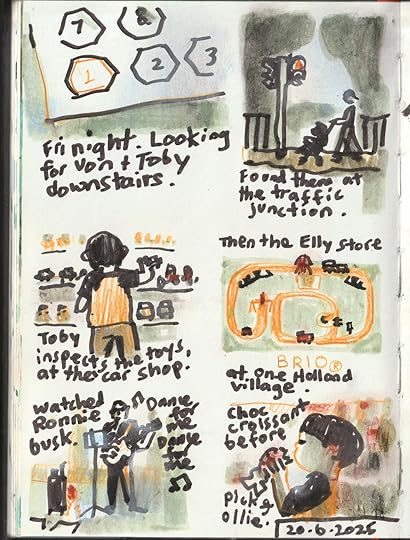 7 8
1 2 3
Fri night. Looking
for Von + Toby
downstairs.
Found them at
the traffic
junction.
Toby
inspects the toys,
at the car shop.
Then the Elly store
BRIO®
at One Holland
village.
watched
Ronnie
busk.
Dance
for
me
Dance
for
me
Choc
croissant
before
pick
Ollie.
20.6.2025